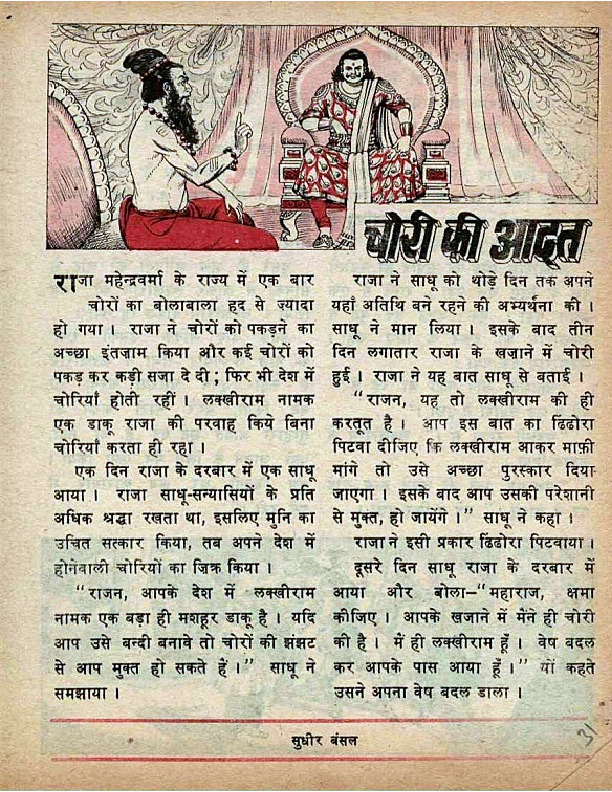 चोरी की आदत
राजा महेन्द्रवर्मा के राज्य में एक बार
चोरों का बोलाबाला हद से ज्यादा
हो गया । राजा ने चोरों को पकड़ने का
अच्छा इंतजाम किया और कई चोरों को
पकड़ कर कड़ी सजा दे दी ; फिर भी देश में
चोरियाँ होती रहीं । लक्खीराम नामक
एक डाकू राजा की परवाह किये बिना
चोरियाँ करता ही रहा ।
एक दिन राजा के दरबार में एक साधू
आया । राजा साधू-सन्यासियों के प्रति
अधिक श्रद्धा रखता था, इसलिए मुनि का
उचित सत्कार किया, तब अपने देश में
होनेवाली चोरियों का ज़िक्र किया ।
“राजन, आपके देश में लक्खीराम
नामक एक बड़ा ही मशहूर डाकू है । यदि
आप उसे बन्दी बनावे तो चोरों की झंझट
से आप मुक्त हो सकते हैं ।” साधू ने
समझाया ।
राजा ने साधू को थोड़े दिन तक अपने
यहाँ अतिथि बने रहने की अभ्यर्थना की ।
साधू ने मान लिया । इसके बाद तीन
दिन लगातार राजा के खज़ाने में चोरी
हुई । राजा ने यह बात साधू से बताई ।
“राजन, यह तो लक्खीराम की ही
करतूत है । आप इस बात का ढिंढोरा
पिटवा दीजिए कि लक्खीराम आकर माफ़ी
मांगे तो उसे अच्छा पुरस्कार दिया
जाएगा । इसके बाद आप उसकी परेशानी
से मुक्त, हो जायेंगे ।” साधू ने कहा ।
राजा ने इसी प्रकार ढिंढोरा पिटवाया ।
दूसरे दिन साधू राजा के दरबार में
आया और बोला–“महाराज, क्षमा
कीजिए । आपके खजाने में मैंने ही चोरी
की है । मैं ही लक्खीराम हूँ । वेष बदल
कर आपके पास आया हूँ ।” यों कहते
उसने अपना वेष बदल डाला ।
सुधीर बंसल
31